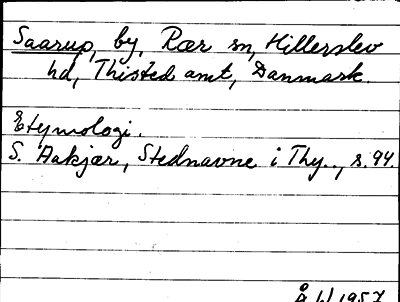 Saarup, by, Rær sn, Hillerslev
hd, Thisted amt, Danmark.
Etymologi.
S. Aakjær, Stednavne i Thy., s. 94.
Å W 1957